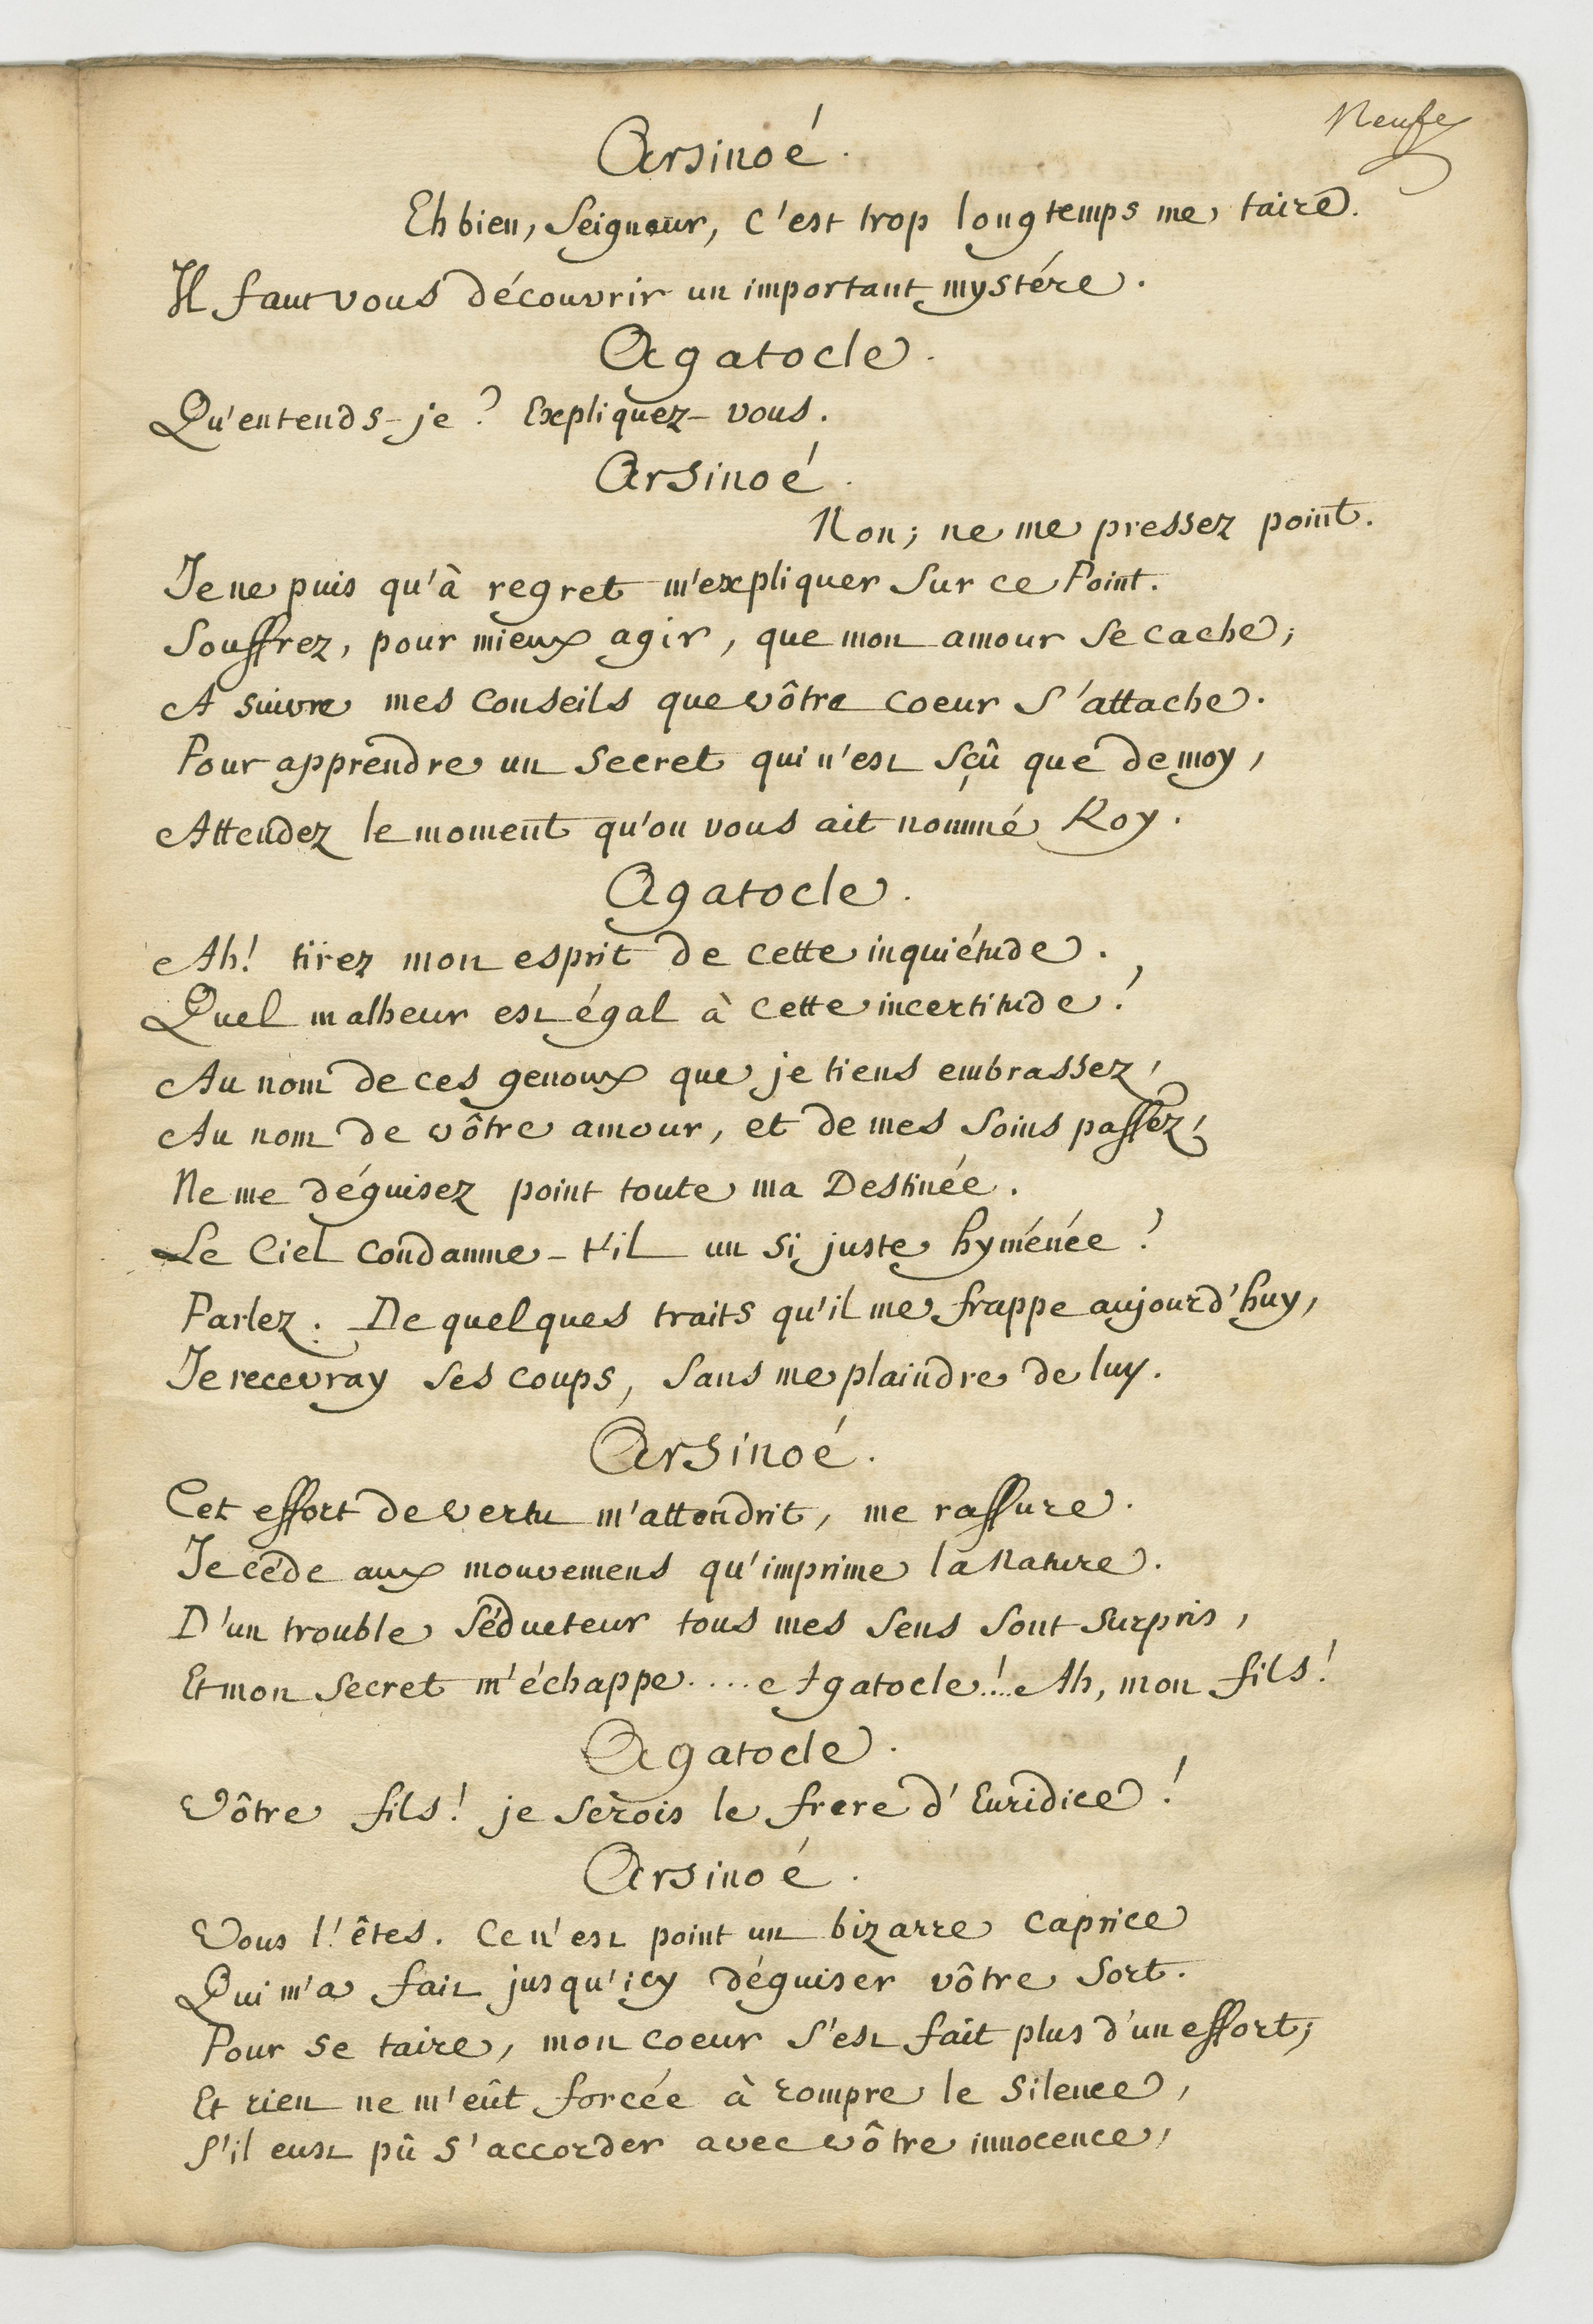 Neufe
Arsinoé.
Eh bien, Seigneur, c'est trop longtemps me taire.
Il faut vous découvrir un important mystére.
Agatocle.
Qu'entends-je? Expliquez-vous.
Arsinoé.
Non; ne me pressez point.
Je ne puis qu'à regret m'expliquer sur ce Point.
Souffrez, pour mieux agir, que mon amour se cache;
A suivre mes conseils que vôtre coeur s'attache.
Pour apprendre un secret qui n'est sçû que de moy,
Attendez le moment qu'on vous ait nommé Roy.
Agatocle.
Ah! tirez mon esprit de cette inquiétude.
Quel malheur est égal à cette incertitude!
Au nom de ces genoux que je tiens embrassez,
Au nom de vôtre amour, et de mes soins passez,
Ne me déguisez point toute ma Destinée.
Le Ciel condamne-t'il un si juste hyménée?
Parlez. De quelques traits qu'il me frappe aujourd'huy,
Je recevray ses coups, sans me plaindre de luy.
Arsinoé.
Cet effort de vertu m'attendrit, me rassure.
Je céde aux mouvemens qu'imprime la Nature.
D'un trouble séducteur tous mes sens sont surpris,
Et mon secret m'échappe.... Agatocle!... Ah, mon fils!
Agatocle.
Vôtre fils! je serois le frere d'Euridice!
Arsinoé.
Vous l'êtes. Ce n'est point un bizarre caprice
Qui m'a fait jusqu'icy déguiser vôtre sort.
Pour se taire, mon coeur s'est fait plus d'un effort;
Et rien ne m'eût forcée à rompre le silence,
S'il eust pû s'accorder avec vôtre innocence,